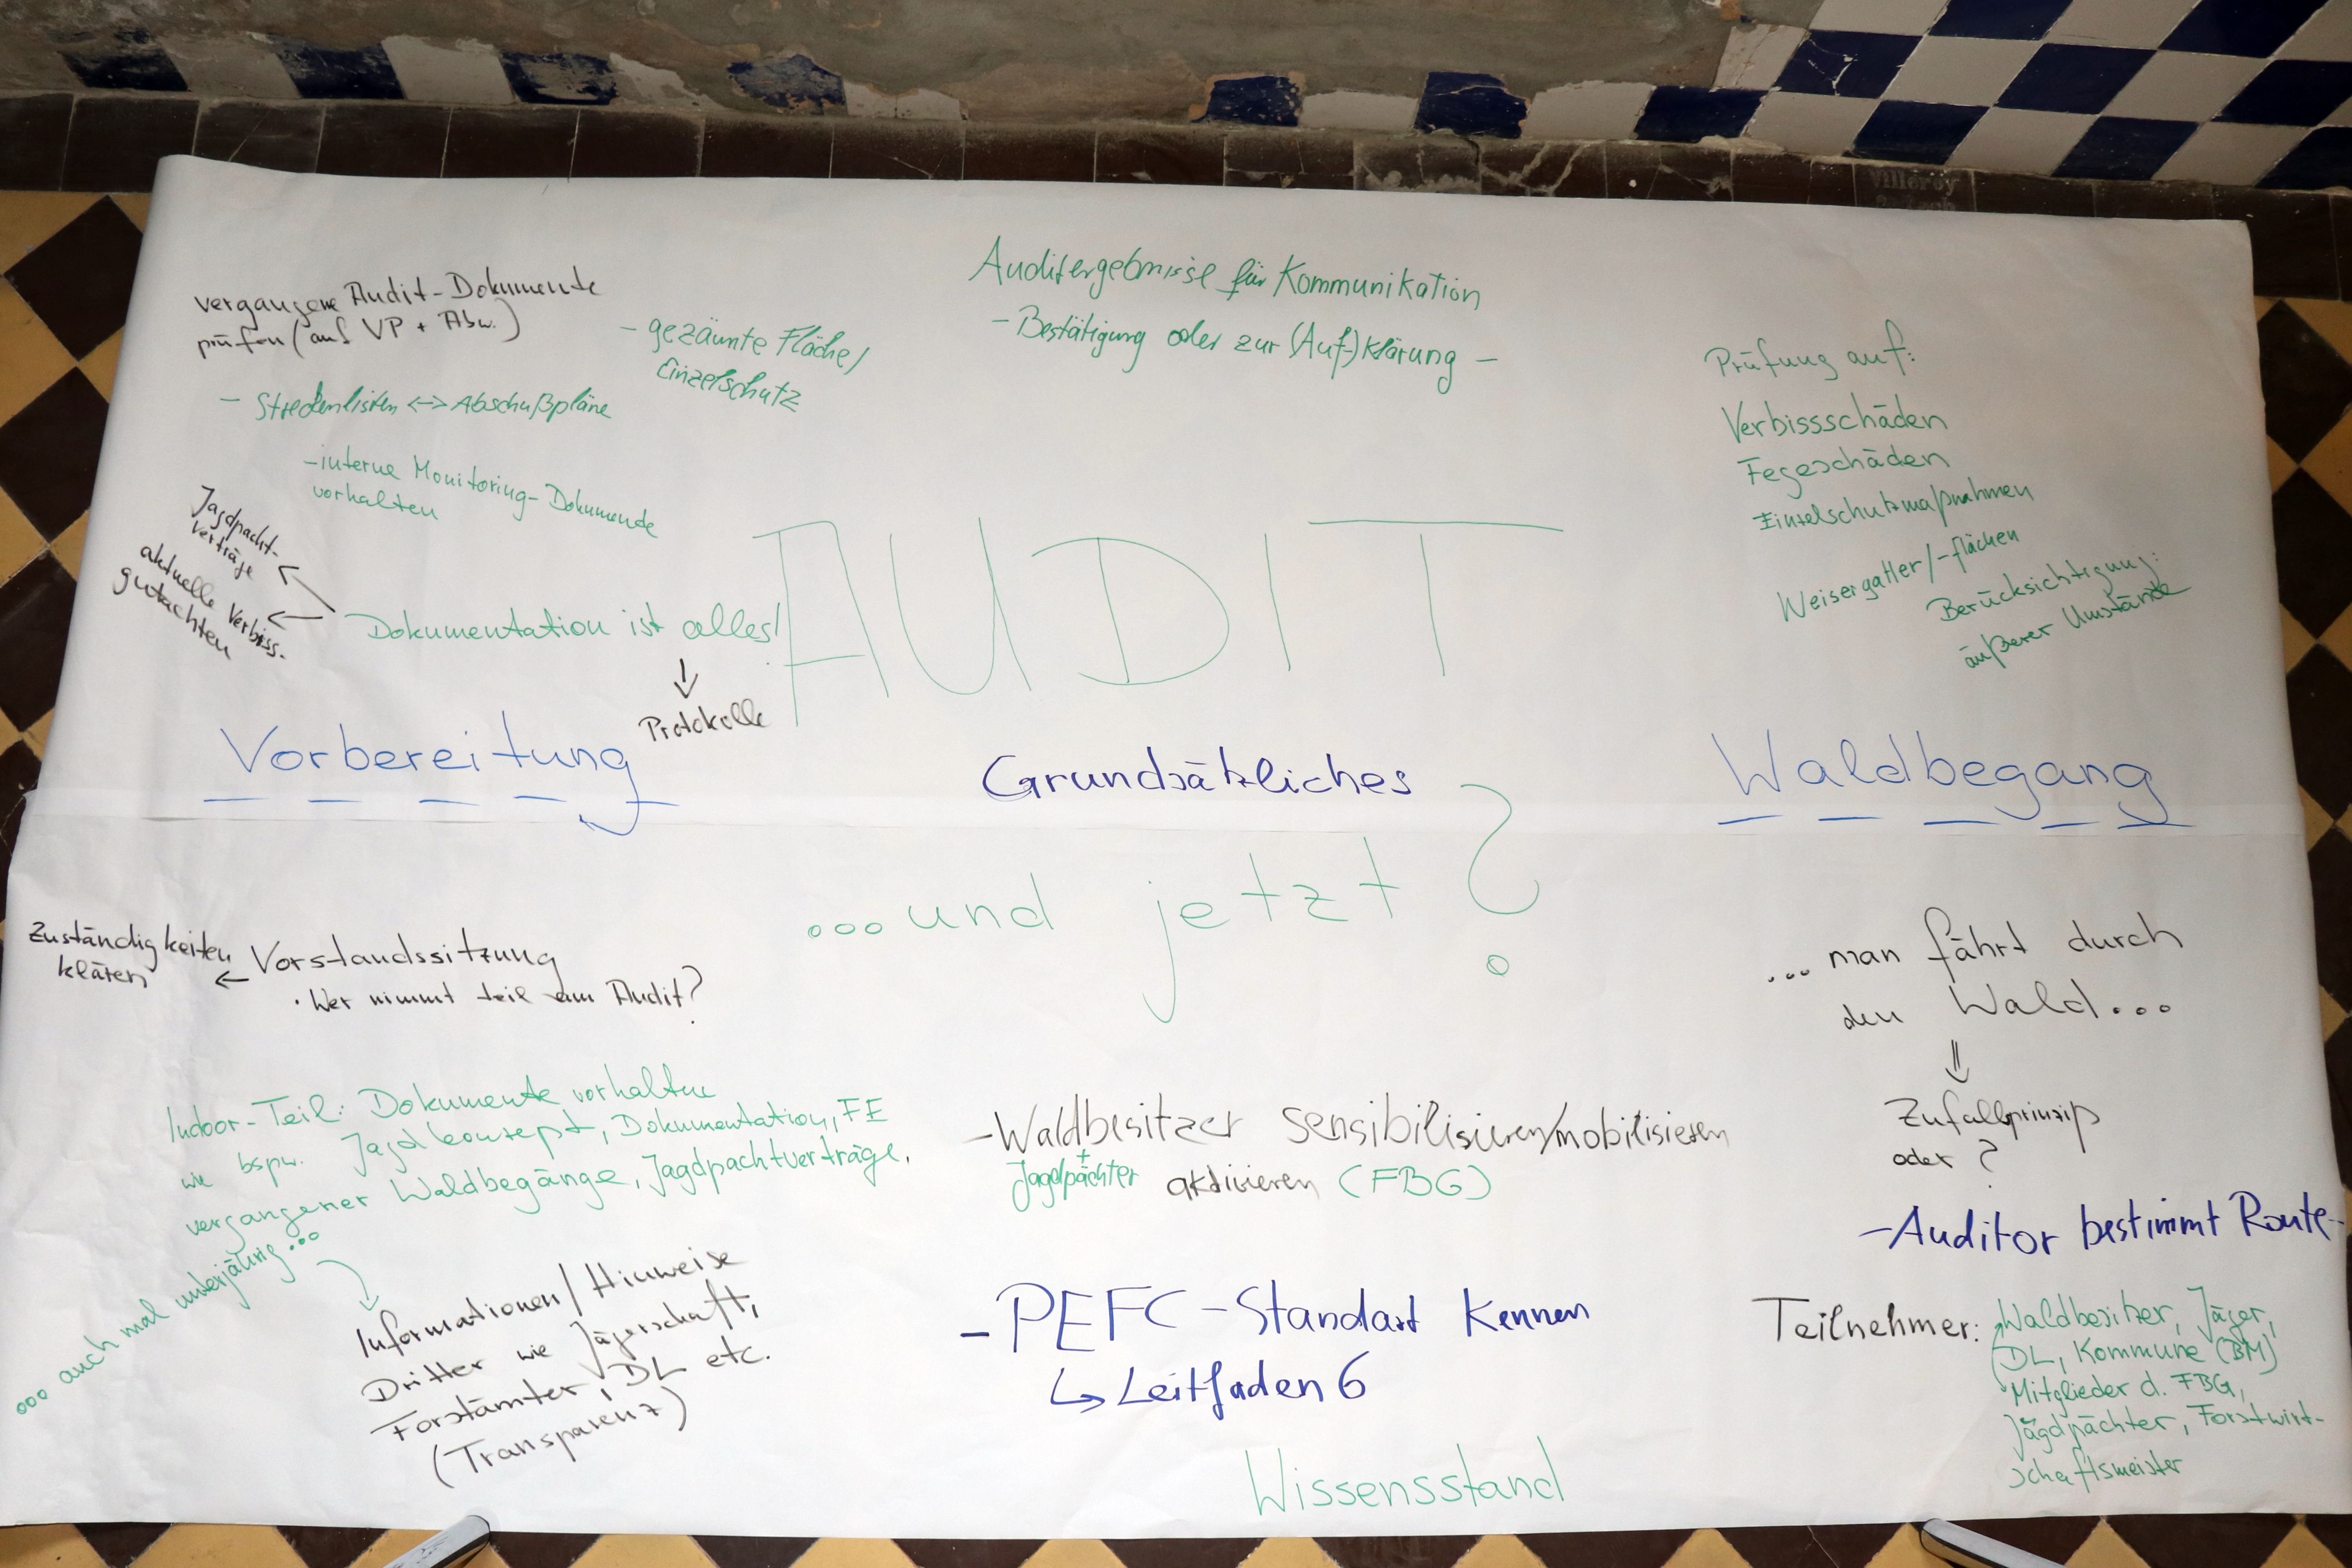 Villeroy
vergangene Audit-Dokumente
prüfen (auf VP + Abw.)
- gezäunte Fläche/
Einzelschutz
- Streckenlisten <-> Abschußpläne
- interne Monitoring-Dokumende
vorhalten
Jagdpacht-
verträge
aktuelle Verbiss-
gutachten
Dokumentation ist alles!
↓
Protokolle
Vorbereitung
Zuständigkeiten
klären
← Vorstandssitzung
· Wer nimmt teil am Audit?
Indoor-Teil: Dokumente vorhalten
wie bspw. Jagdkonzept, Dokumentation, FE
vergangener Waldbegänge, Jagdpachtverträge,
... auch mal unterjährig...
Informationen/Hinweise
Dritter wie Jägerschaft,
Forstämter, DL etc.
(Transparenz)
Auditergebnisse für Kommunikation
- Bestätigung oder zur (Auf-)klärung -
AUDIT
Grundsätzliches
...und jetzt?
- Waldbesitzer sensibilisieren/mobilisieren
+
Jagdpächter aktivieren (FBG)
- PEFC-Standart kennen
↳ Leitfaden 6
Wissensstand
Prüfung auf:
Verbissschäden
Fegeschäden
Einzelschutzmaßnahmen
Weisergatter/-flächen
Berücksichtigung:
äußerer Umstände
Waldbegang
... man fährt durch
den Wald...
⇓
Zufallprinzip
oder ?
- Auditor bestimmt Route-
Teilnehmer: Waldbesitzer, Jäger,
DL, Kommune (BM)
Mitglieder d. FBG,
Jagdpächter, Forstwirt-
schaftsmeister